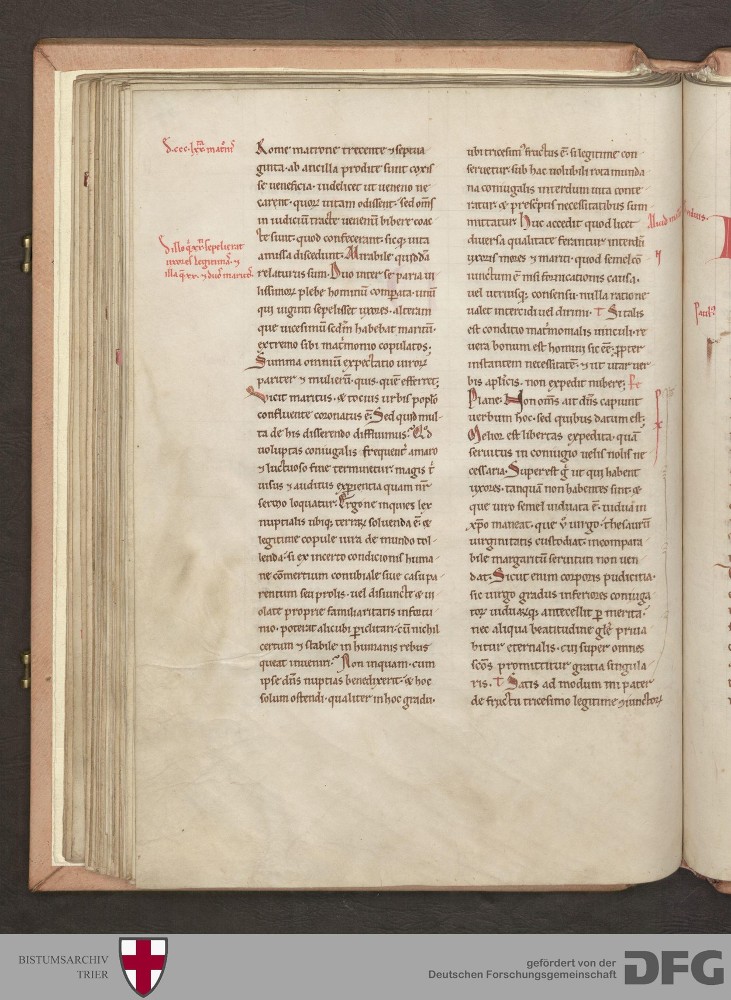 D. ccc. lxx. matroniſ
Rome matrone trecente ⁊ septua
ginta. ab ancilla prodite sunt q͛ris
se ueneficia. uidelicet ut ueneno ne
carent. quoꝝ uitam odissent. sed om̅s
in iudiciū tracte uenenū bibere coac
te sunt. quod confecerant. sicq; uita
amissa discedunt. Mirabile quidda̅
relaturus sum. Duo inter se paria ui
D illo q̇ xx. sepelierat
uxores legitimas. ⁊
illa q̄ xx. ⁊ duos maritos.
lissimoꝝ plebe hominū comparata. unū
qui uiginti sepelisset uxores. alteram
que uicesimum secdm̅ habebat maritū.
extremo sibi mat͛monio copulatos.
Summa omniū expectatio uiroꝝ
pariter ⁊ mulierū. quis. quem efferret.
Vicit maritus. & tocius urbis poplo
confluente coronatus ē. Sed quid mul
ta de his disserendo diffluimus? Qd̾
uoluptas coniugalis frequent͛ amaro
⁊ luctuoso fine terminetur. magis t̾
uisus ⁊ auditus experientia quam nr̄
sermo loquatur. Ergone inquies lex
nuptialis ubiq; terraꝝ soluenda ē. &
legitime copule iura de mundo tol
lenda. si ex incerto condicionis huma
ne cōmertium conubiale siue casu pa
rentum seu prolis. uel disiuncte & ui
olate proprie familiaritatis infortu
nio. poterit alicubi periclitari. cū nichil
certum ⁊ stabile in humanis rebus
queat inueniri? Non inquam. cum
ipse dn̄s nuptias benedixerit. & hoc
solum ostendi. qualiter in hoc gradu.
ubi tricesim' fructus ē. si legitime con
seruetur. sub hac uolubili rota munda
na coniugalis interdum uita conte
ratur. & prescriptis necessitatibus sum
mittatur. Huc accedit quod licet
diuersa qualitate ferantur interdū
uxoris mores ⁊ mariti. quod semel cō
iunctum ē nisi fornicationis causa.
uel utriusq; consensu nulla ratione
ualet intercidi uel dirimi. T Si talis
est conditio mat͛monialis uinculi. re
uera bonum est homini sic ēē. propter
instantem necessitatē. ⁊ ut utar uer
bis apl̄icis. non expedit nubere. Pe
Plane. Non om̅s ait dn̄s capiunt
uerbum hoc. sed quibus datum est.
Melior est libertas expedita. quā
seruitus in coniugio uelis nolis ne
cessaria. Superest g̊ ut qui habent
uxores. tanquā non habentes sint. &
que uiro semel uiduata ē. uidua in
xp̄o maneat. que ū uirgo. thesaurū
uirginitatis custodiat. incompara
bile margaritū seruituti non uen
dat. Sicut enim corporis pudicitia.
sic uirgo gradus inferiores coniuga
toꝝ uiduaꝝq; antecellit p̄ merita.
nec aliqua beatitudine glē priua
bitur eternalis. cui super omnes
scōs promittitur gratia singula
ris. T Satis ad modum mi pater
de fructu tricesimo legitime ⁊iunctoꝝ
BISTUMSARCHIV
TRIER
gefördert von der
Deutschen Forschungsgemeinschaft
DFG